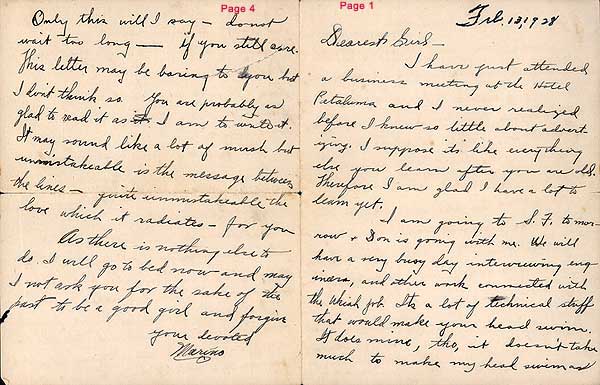 Page 4
Only this will I say – do not
wait too long — if you still care.
This letter may be boring to you but
I dont think so. You are probably as
glad to read it as I am to write it.
It may sound like a lot of mush but
unmistakeable is the message between
the lines – quite unmistakeable the
love which it radiates – for you
As there is nothing else to
do. I will go to bed now and may
I not ask you for the sake of the
past to be a good girl and forgive
your devoted
Marino
Page 1
Feb. 13, 1928
Dearest Girl –
I have just attended
a business meeting at the Hotel
Petaluma and I never realized
before I knew so little about advert
ising. I suppose its like everything
else you learn after you are old.
Therefore I am glad I have a lot to
learn yet.
I am going to S. F. tomor-
row & Don is going with me. We will
have a very busy day interviewing eng
ineers, and other work connected with
the Ukiah job. Its a lot of technical stuff
that would make your head swim.
It does mine, tho, it doesn't take
much to make my head swim as